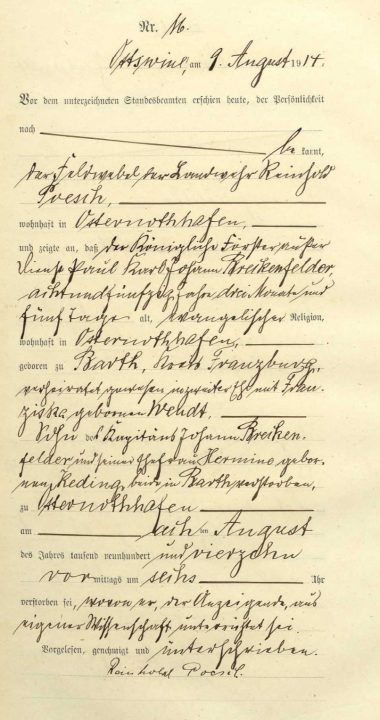 Nr. 16.
Ostswine, am 9. August 1914.
Vor dem unterzeichneten Standesbeamten erschien heute, der Persönlichkeit
nach be kannt,
der Feldwebel der Landwehr Reinhold
Poesch,
wohnhaft in Osternothhafen,
und zeigte an, daß der Königliche Förster außer
Dienst Paul Karl Johann Breikenfelder,
achtundfünfzig Jahre drei Monate und
fünf Tage alt, evangelischer Religion,
wohnhaft in Osternothhafen,
geboren zu Barth, Kreis Franzburg,
verheiratet gewesen in zweiter Ehe mit Fran-
ziska, geborenen Wendt,
Sohn des Kapitäns Johann Breiken-
felder und seiner Ehefrau Hermine gebor-
nen Reding, beide in Barth verstorben,
zu Osternothhafen
am acht ten August
des Jahres tausend neunhundert und vierzehn
vor mittags um sechs Uhr
verstorben sei, wovon er, der Anzeigende, aus
eigener Wissenschaft unterrichtet sei.
Vorgelesen, genehmigt und unterschrieben.
Reinhold Poesch.